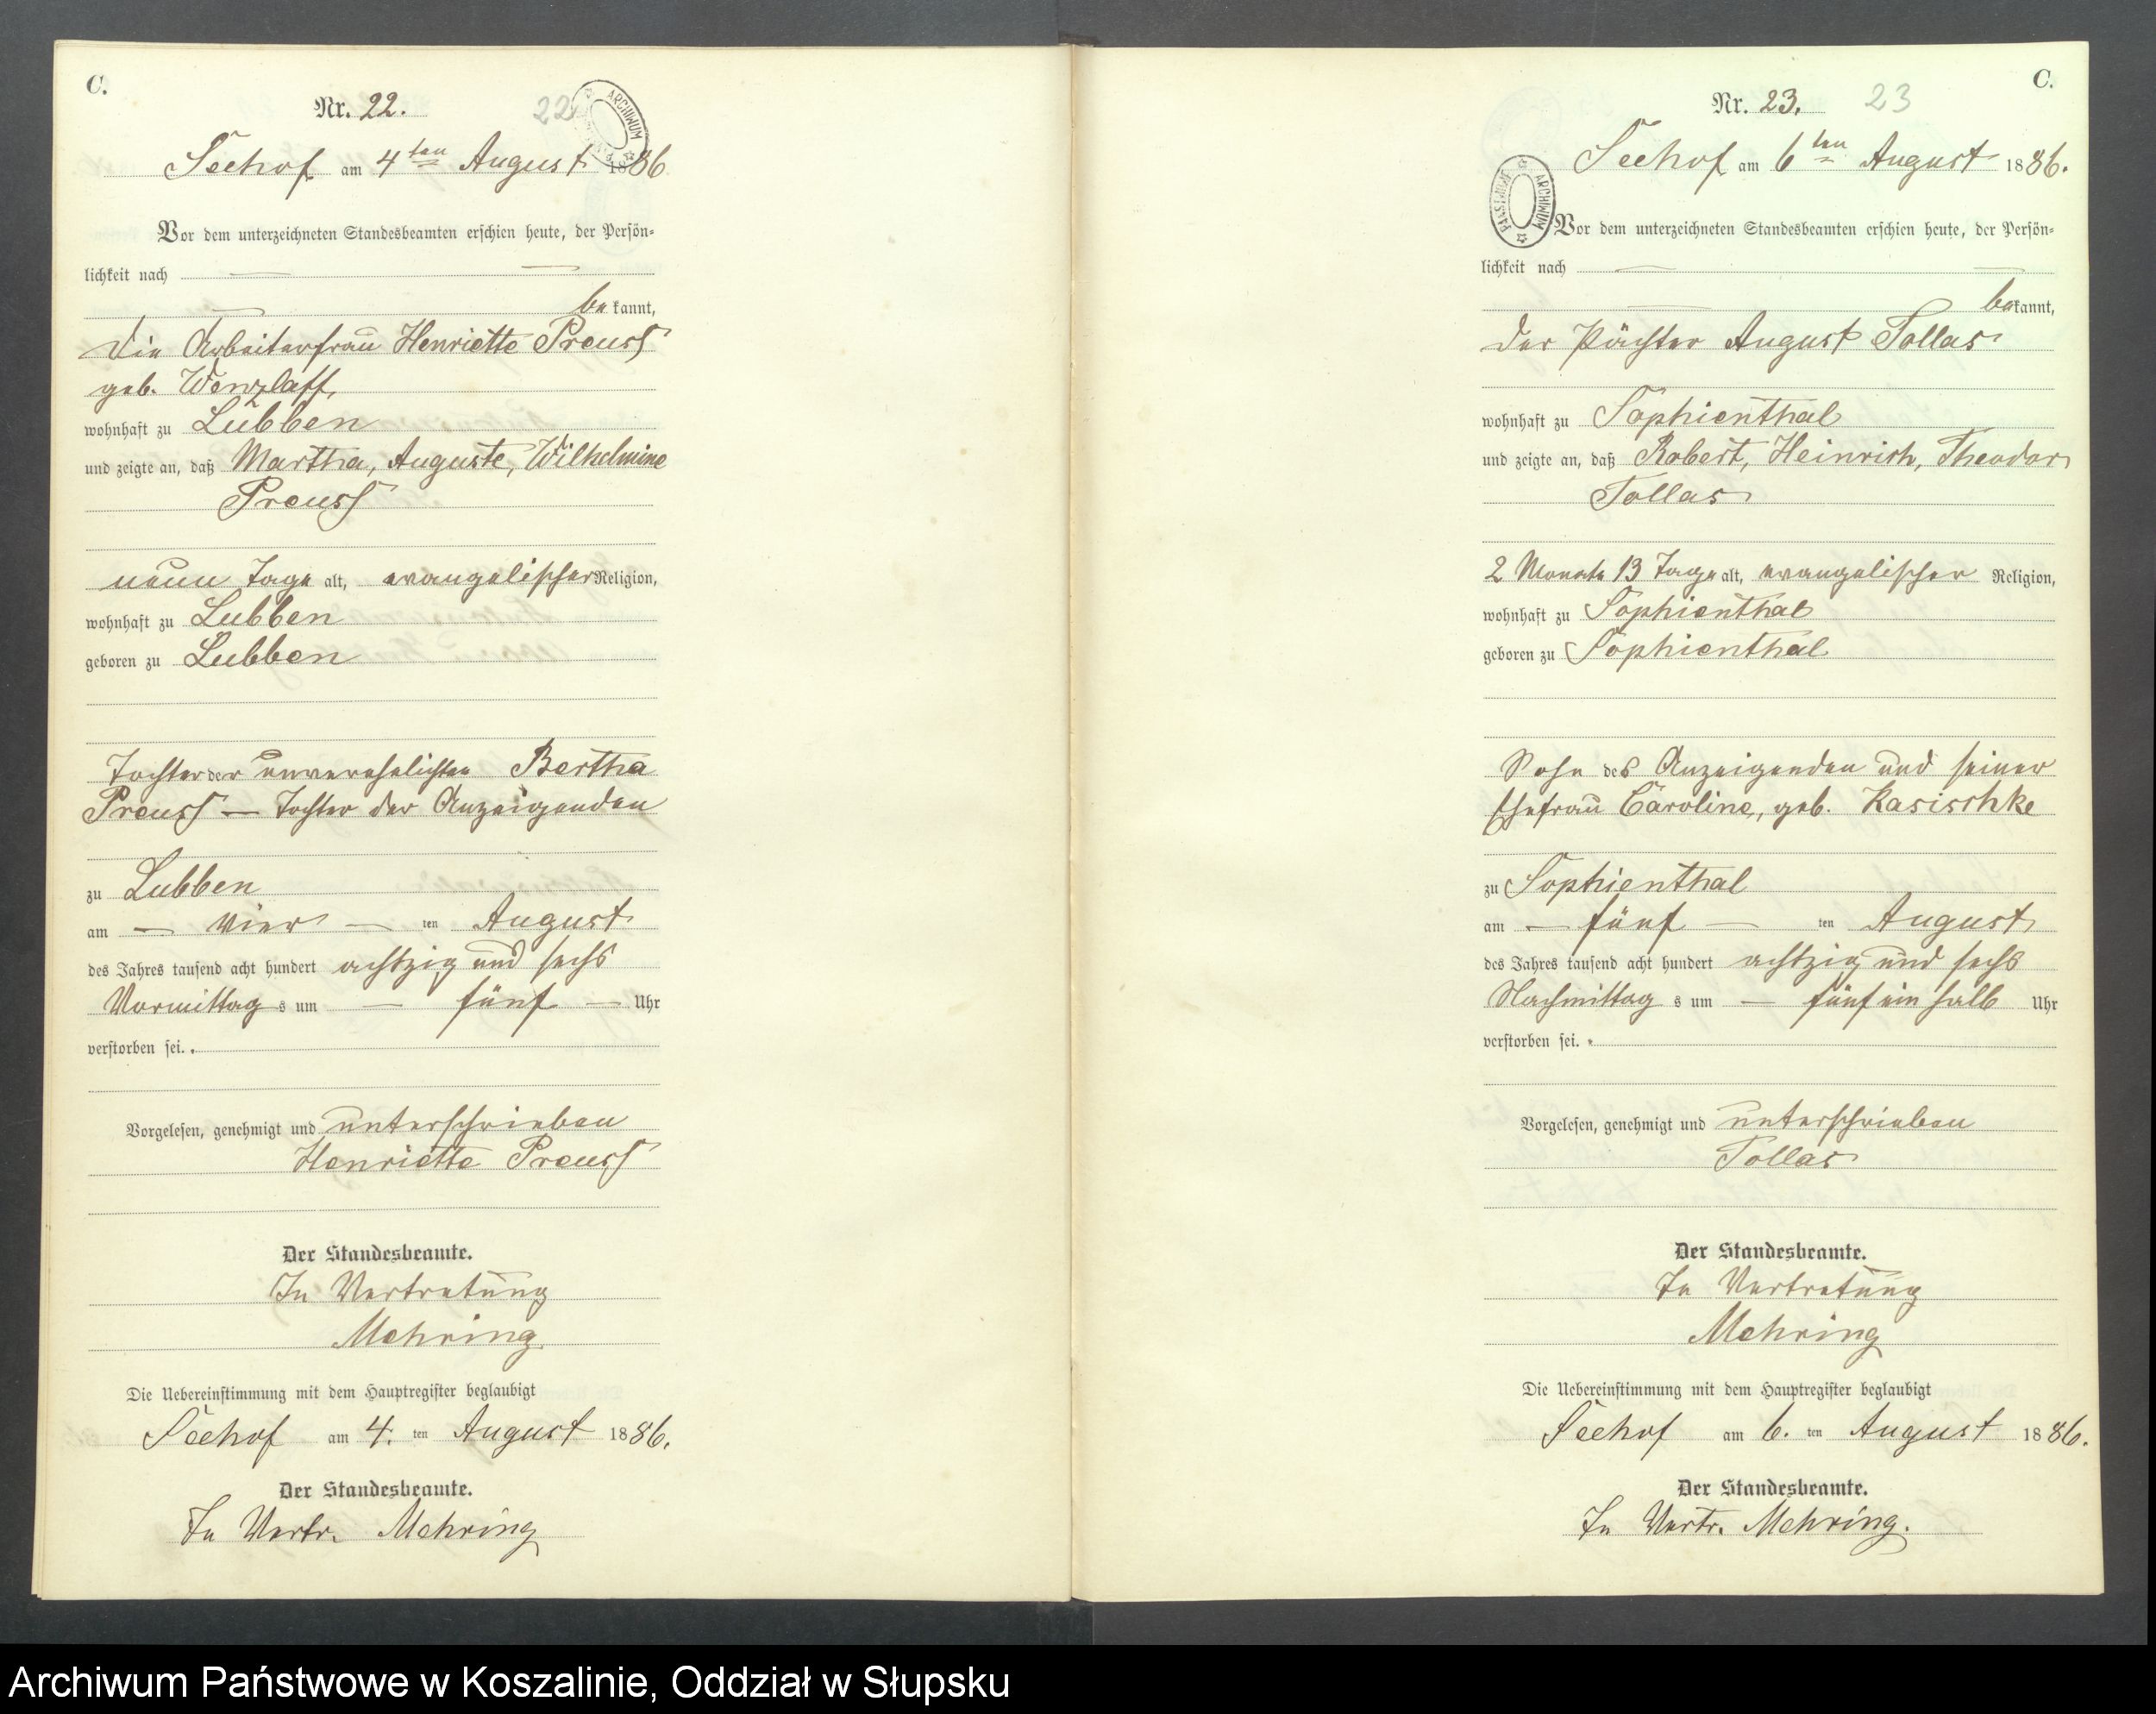 C.
Nr. 22.
22
ARCHIWUM
Seehof am 4ten August 1886
Vor dem unterzeichneten Standesbeamten erschien heute, der Persön=
lichkeit nach
bekannt,
die Arbeiterfrau Henriette Preuss
geb. Wenzlaff,
wohnhaft zu Lübben
und zeigte an, daß Martha, Auguste, Wilhelmine
Preuss
neun Tage alt, evangelischer Religion,
wohnhaft zu Lübben
geboren zu Lübben
Tochter der unverehelichten Bertha
Preuss — Tochter der Anzeigenden
zu Lübben
am — vier — ten August
des Jahres tausend acht hundert achtzig und sechs
Vormittags um — fünf — Uhr
verstorben sei.
Vorgelesen, genehmigt und unterschrieben
Henriette Preuss
Der Standesbeamte.
In Vertretung
Mehring
Die Uebereinstimmung mit dem Hauptregister beglaubigt
Seehof am 4. ten August 1886.
Der Standesbeamte.
In Vertr. Mehring
C.
Nr. 23.
23
Seehof am 6ten August 1886.
PAŃSTWOWE ARCHIWUM
Vor dem unterzeichneten Standesbeamten erschien heute, der Persön=
lichkeit nach
bekannt,
der Pächter August Tollas
wohnhaft zu Sophienthal
und zeigte an, daß Robert, Heinrich, Theodor
Tollas
2 Monate 13 Tage alt, evangelischer Religion,
wohnhaft zu Sophienthal
geboren zu Sophienthal
Sohn des Anzeigenden und seiner
Ehefrau Caroline, geb. Kasischke
zu Sophienthal
am — fünf — ten August
des Jahres tausend acht hundert achtzig und sechs
Nachmittags um — fünf ein halb Uhr
verstorben sei.
Vorgelesen, genehmigt und unterschrieben
Tollas
Der Standesbeamte.
In Vertretung
Mehring
Die Uebereinstimmung mit dem Hauptregister beglaubigt
Seehof am 6. ten August 1886.
Der Standesbeamte.
In Vertr. Mehring.
Archiwum Państwowe w Koszalinie, Oddział w Słupsku